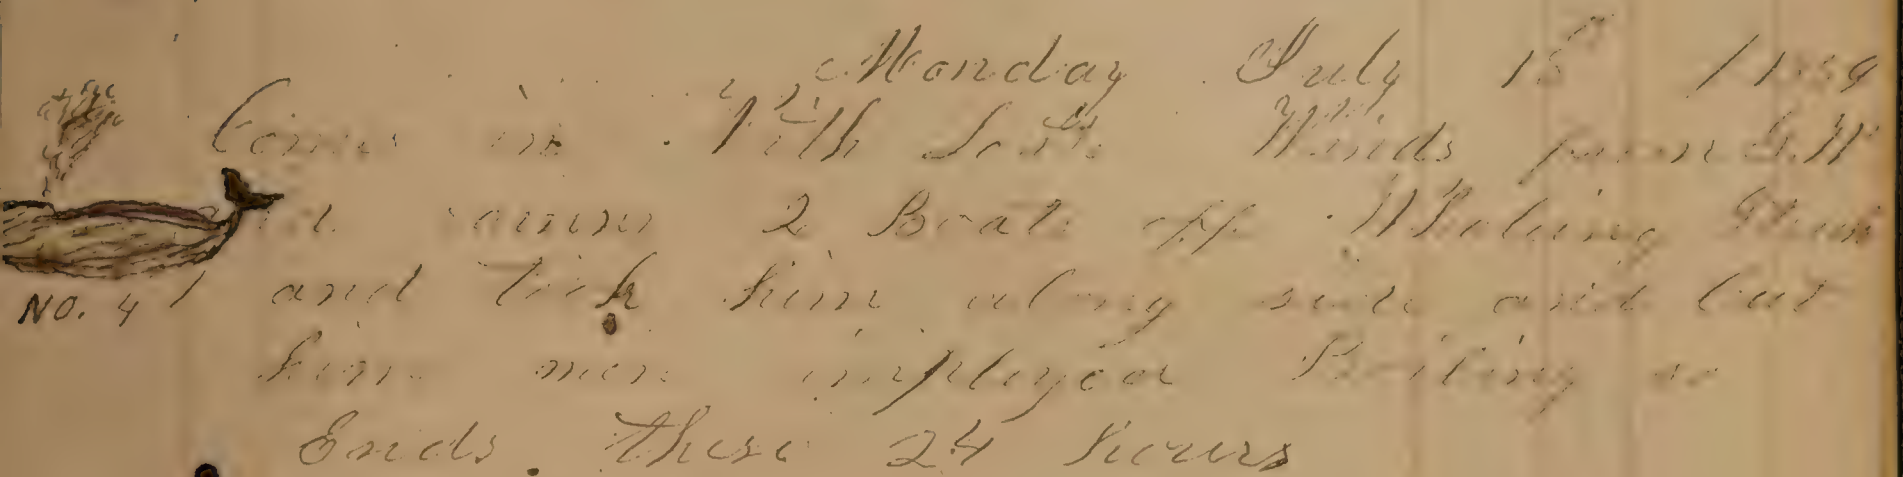 Monday July 15th 1859
Comes in With Winds from S.W
2 Boats off Whaling
NO. 4 and took him along side and Cut
him men imployed Boiling so
Ends these 24 hours